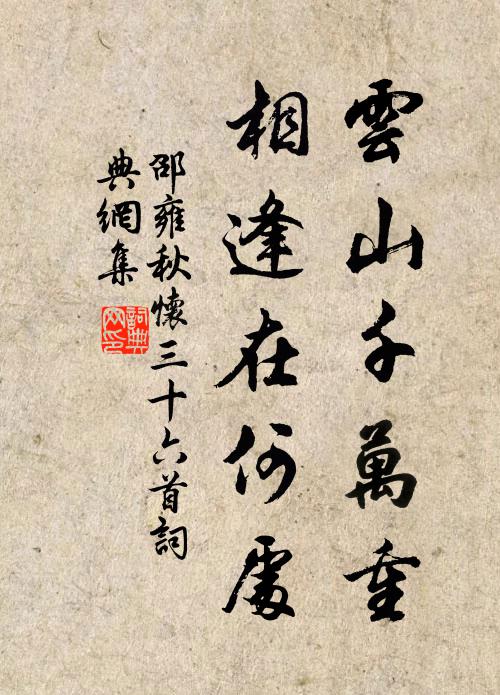 雲山千萬重
相逢在何處
邵雍秋懷三十六首詞
典網集
詞典網印